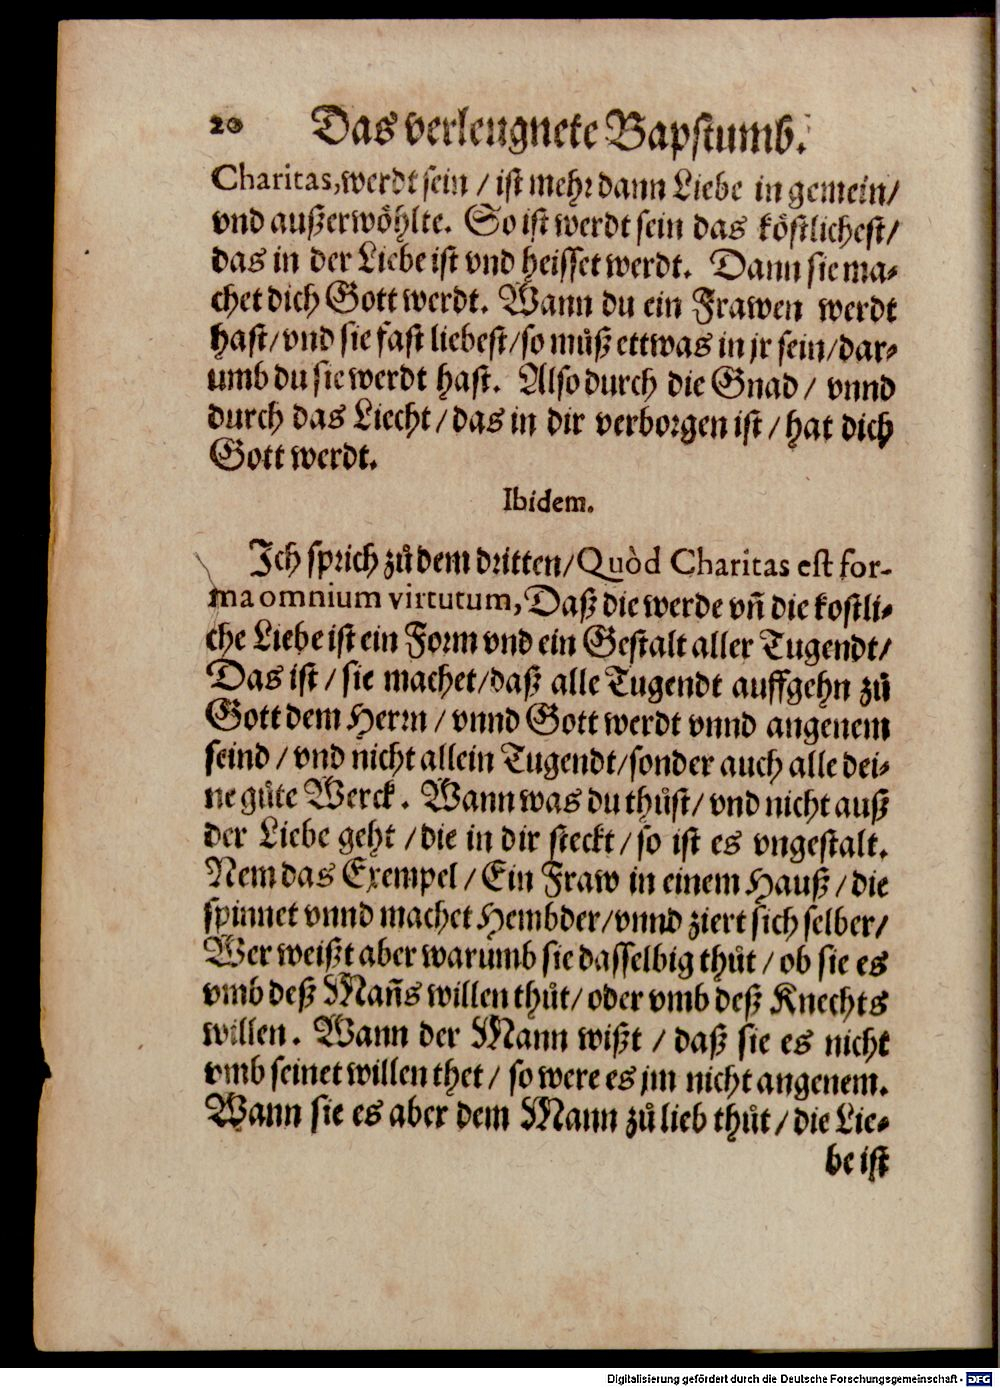 20 Das verleugnete Bapstumb.
Charitas, werdt sein / ist mehr dann Liebe in gemein/
vnd außerwöhlte. So ist werdt sein das köstlichest/
das in der Liebe ist vnd heisset werdt. Dann sie ma-
chet dich Gott werdt. Wann du ein Frawen werdt
hast/vnd sie fast liebest/so můß ettwas in jr sein/dar-
umb du sie werdt hast. Also durch die Gnad / vnnd
durch das Liecht/das in dir verborgen ist/hat dich
Gott werdt.
Ibidem.
Ich sprich zů dem dritten/Quòd Charitas est for-
ma omnium virtutum, Daß die werde vñ die kostli-
che Liebe ist ein Form vnd ein Gestalt aller Tugendt/
Das ist / sie machet/daß alle Tugendt auffgehn zů
Gott dem Herrn / vnnd Gott werdt vnnd angenem
seind / vnd nicht allein Tugendt/sonder auch alle dei-
ne gůte Werck. Wann was du thůst/ vnd nicht auß
der Liebe geht /die in dir steckt/so ist es vngestalt.
Nem das Exempel / Ein Fraw in einem Hauß / die
spinnet vnnd machet Hembder/vnnd ziert sich selber/
Wer weißt aber warumb sie dasselbig thůt / ob sie es
vmb deß Mañs willen thůt/ oder vmb deß Knechts
willen. Wann der Mann wißt / daß sie es nicht
vmb seinet willen thet / so were es jm nicht angenem.
Wann sie es aber dem Mann zů lieb thůt / die Lie-
be ist
Digitalisierung gefördert durch die Deutsche Forschungsgemeinschaft - DFG